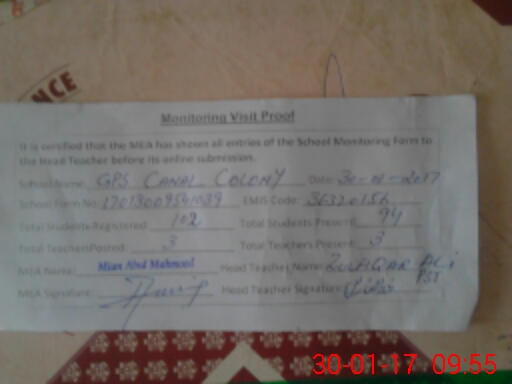 NCE
Monitoring Visit Proof
It is certified that the MEA has shown all entries of the School Monitoring Form to
the Head Teacher before its online submission.
School Name: GPS CANAL COLONY Date: 30-01-2017
School Form No: EMIS Code: 36320156
Total Students Registered: 102 Total Students Present: 94
Total Teachers Posted: 3 Total Teachers Present: 3
MEA Name: Mian Abul Mahmood Head Teacher Name: ZULFIQAR ALI
PST
MEA Signature: Head Teacher Signature:
30-01-17 09:55